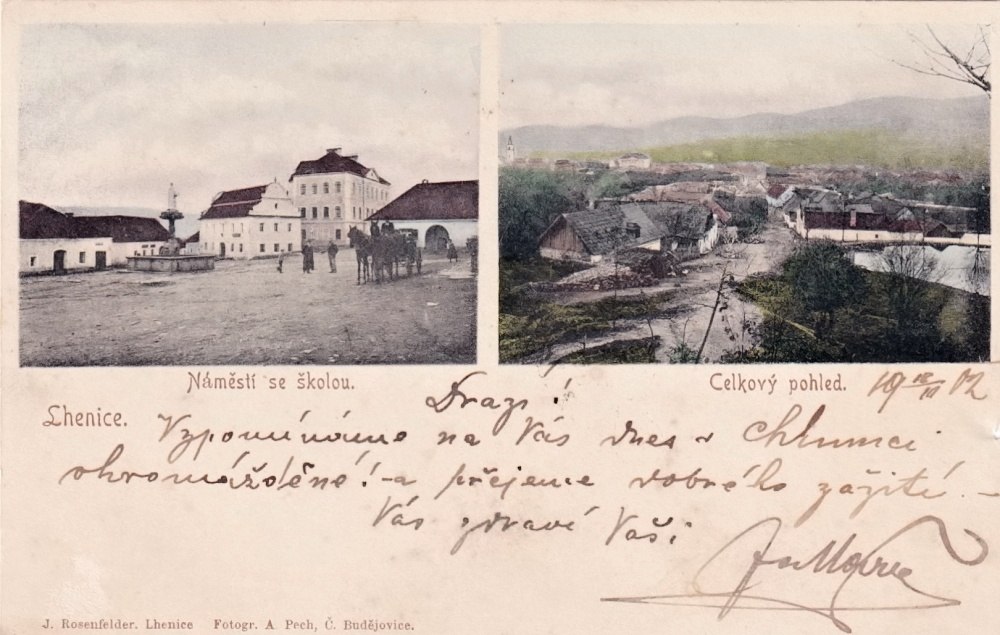 Náměstí se školou.
Celkový pohled.
Lhenice.
Drazí!
19 18/III 02
Vzpomínáme na Vás dnes v Chlumci
shromážděné! - a přejeme dobrého zažití. -
Vás zdraví Vaši
J. Rosenfelder. Lhenice Fotogr. A Pech, Č. Budějovice.